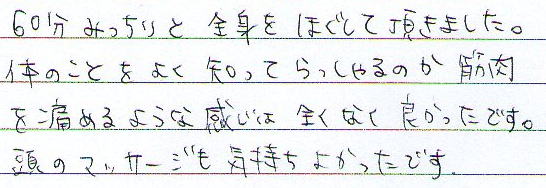 60分みっちりと全身をほぐして頂きました。
体のことをよく知ってらっしゃるのか筋肉
を痛めるような感じは全くなく良かったです。
頭のマッサージも気持ちよかったです。